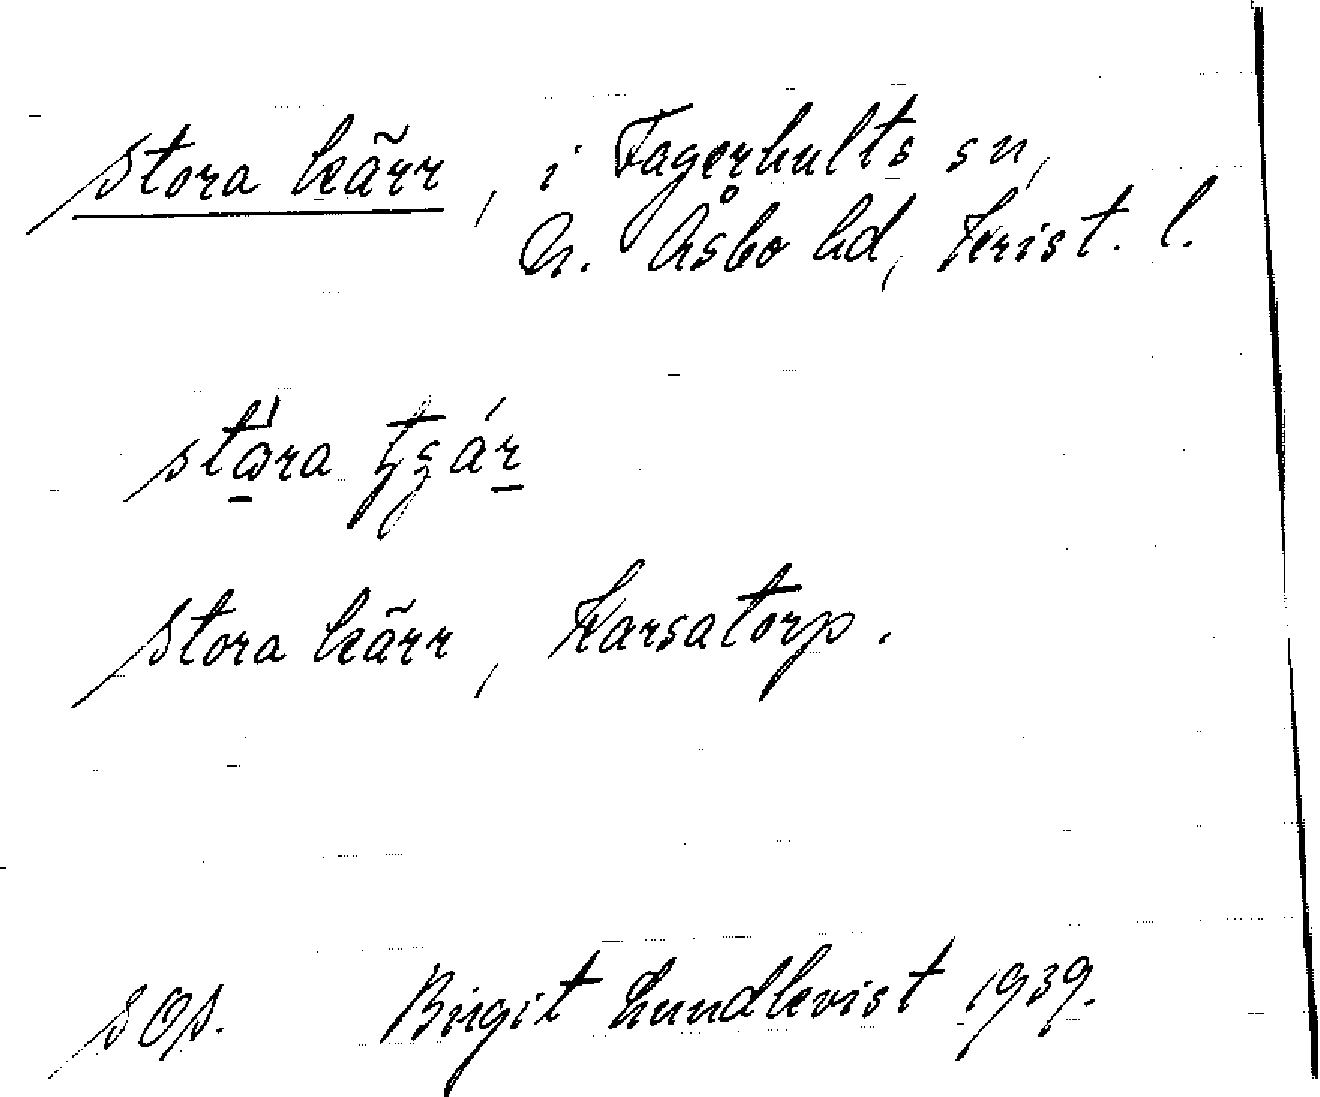 Stora kärr, i Fagerhults sn,
N. Åsbo hd, Krist. l.
Stora kärr, Karsatorp.
SOA. Birgit Lundkvist 1939.